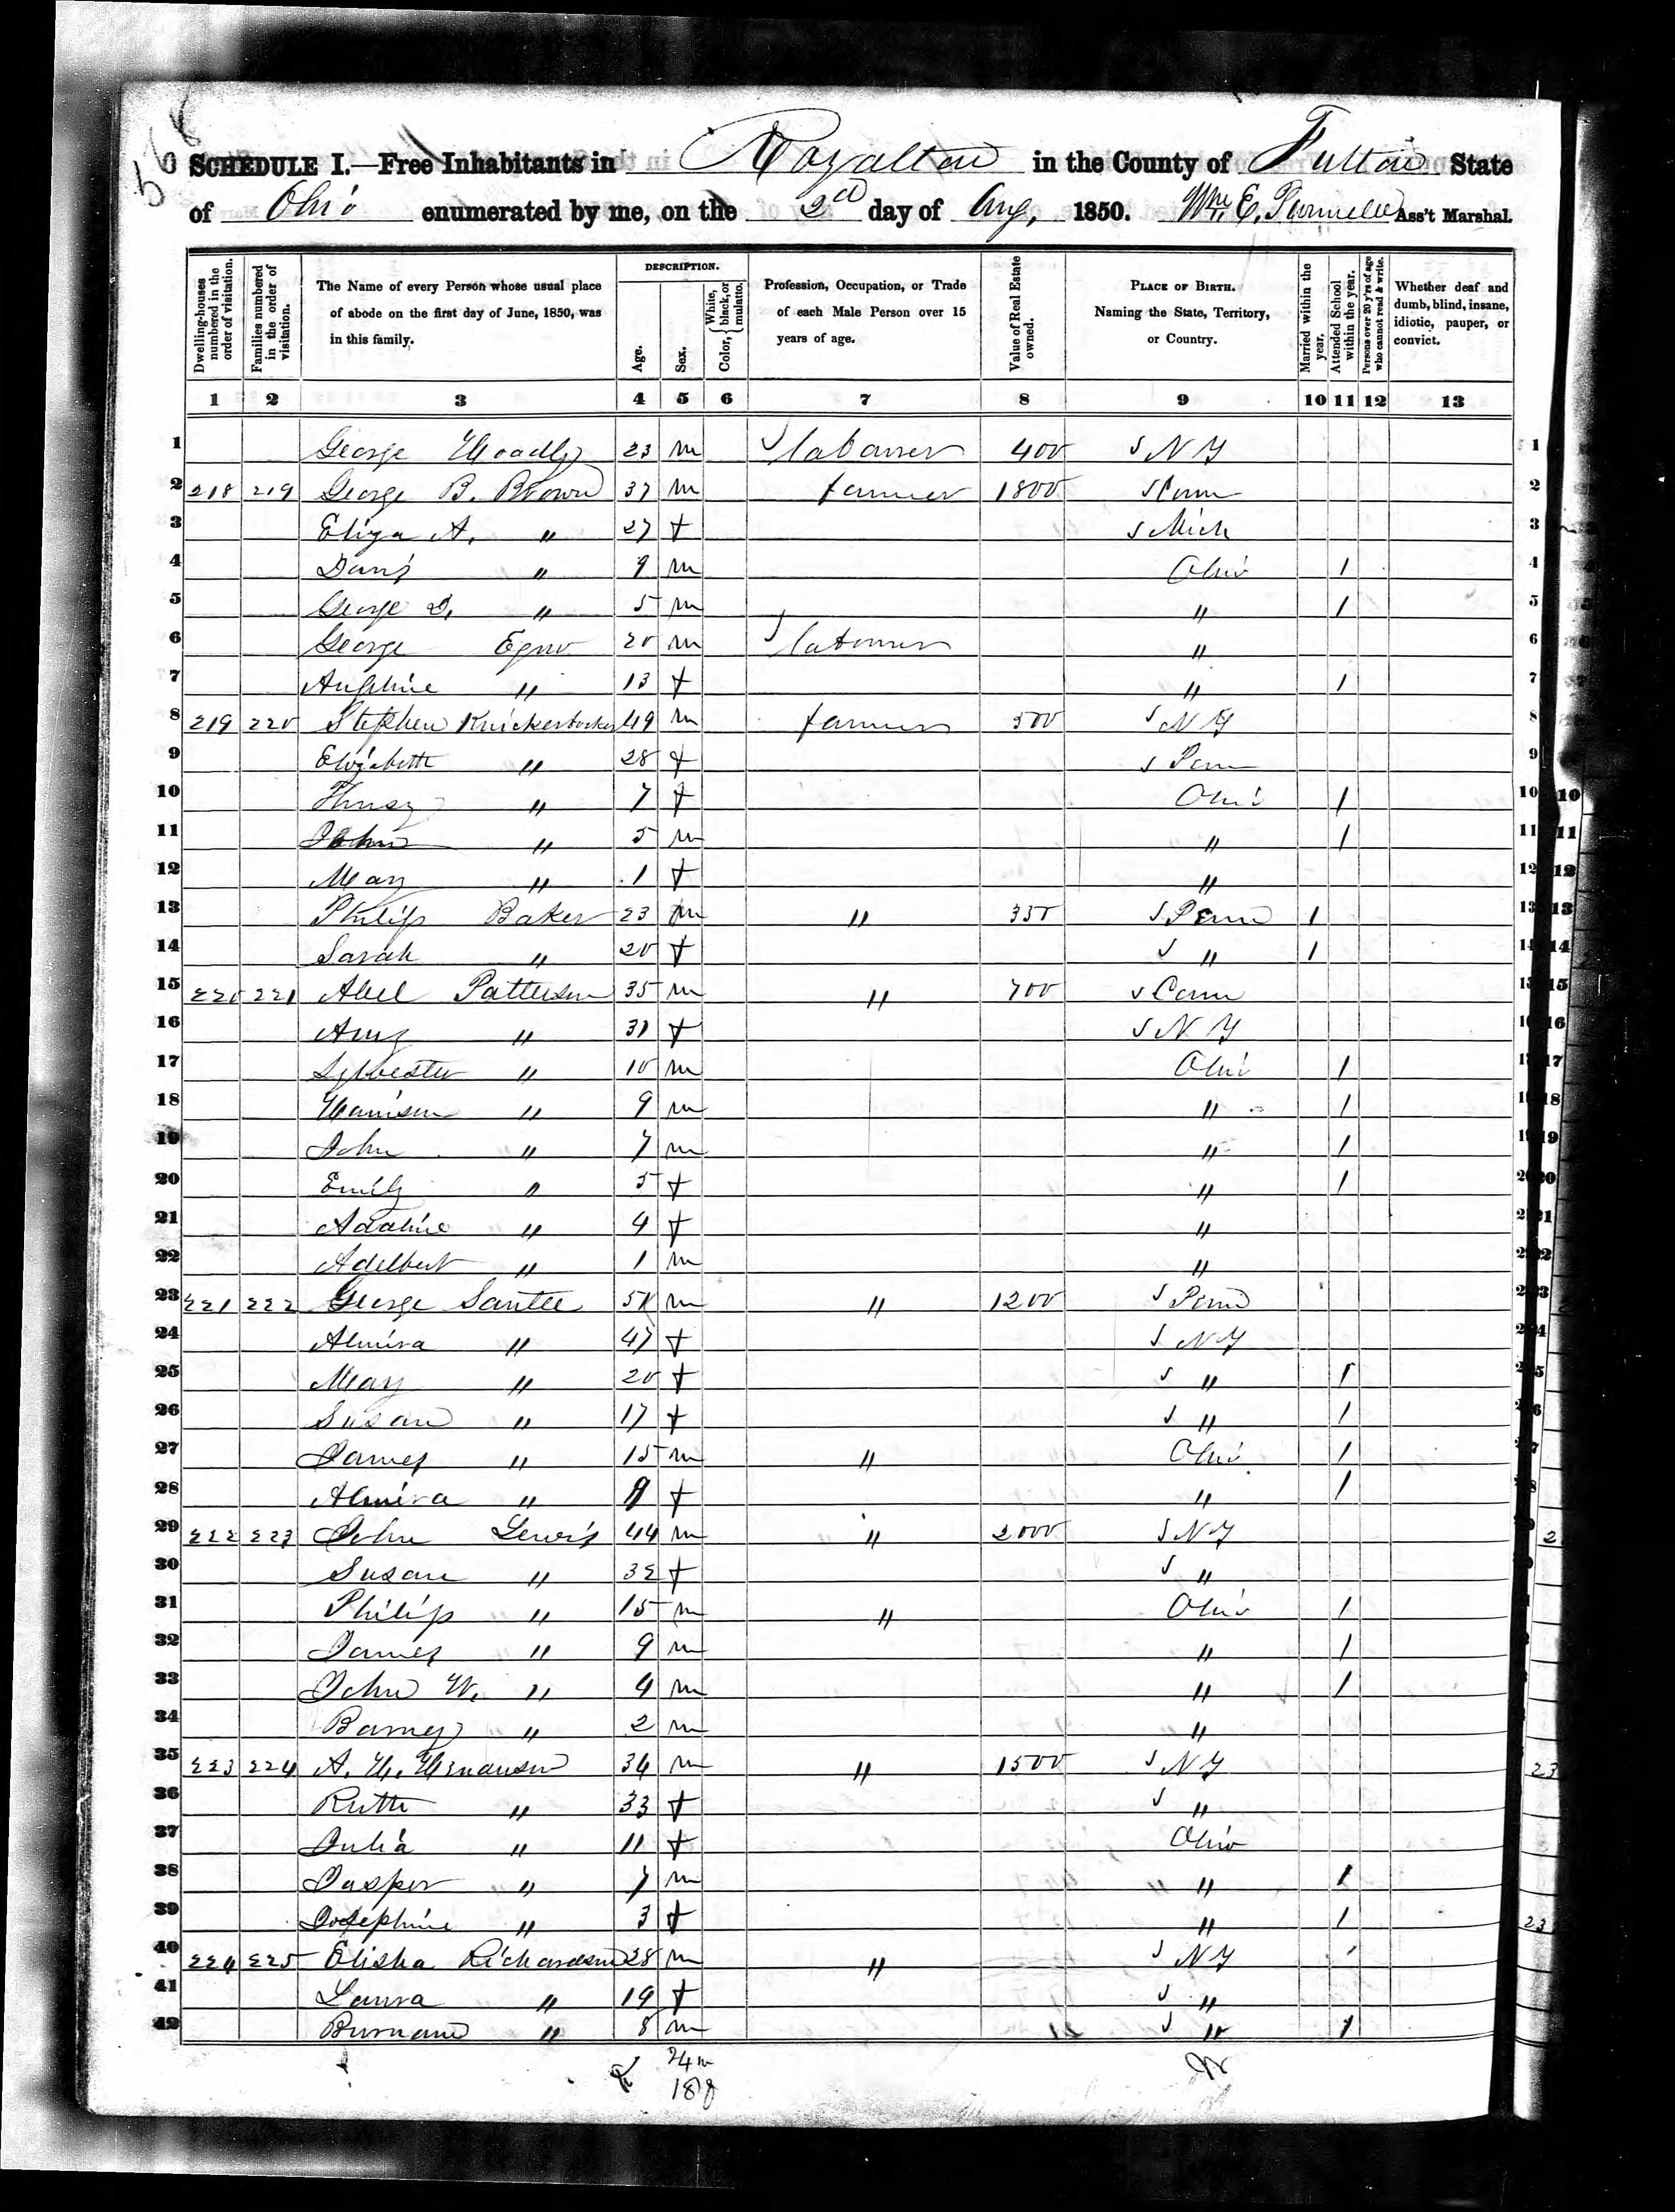 568
SCHEDULE I.—Free Inhabitants in Royalton in the County of Fulton State
of Ohio enumerated by me, on the 2d day of Aug, 1850. Wm. E. Ass't Marshal.
Dwelling-houses numbered in the order of visitation.
Families numbered in the order of visitation.
The Name of every Person whose usual place of abode on the first day of June, 1850, was in this family.
DESCRIPTION.
Age.
Sex.
Color, { White, black, or mulatto.
Profession, Occupation, or Trade of each Male Person over 15 years of age.
Value of Real Estate owned.
PLACE OF BIRTH. Naming the State, Territory, or Country.
Married within the year.
Attended School within the year.
Persons over 20 y'rs of age who cannot read & write.
Whether deaf and dumb, blind, insane, idiotic, pauper, or convict.
1 2 3 4 5 6 7 8 9 10 11 12 13
1 George 23 m labourer 400 N Y 1
2 218 219 George B. Brown 37 m farmer 1800 Conn 2
3 Eliza A. " 27 f Mich 3
4 " 9 m Ohio 1 4
5 George D. " 5 m " 1 5
6 George 20 m labourer " 6
7 " 13 f " 1 7
8 219 220 Stephen Knickerbocker 49 m farmer 500 N Y 8
9 Elizabeth " 28 f Penn 9
10 " 7 f Ohio 1 10
11 John " 5 m " 1 11
12 Mary " 1 f " 12
13 Philip Baker 23 m " 350 Penn 1 13
14 Sarah " 20 f " 1 14
15 220 221 Abel Patterson 35 m " 700 Conn 15
16 Amy " 31 f N Y 16
17 Sylvester " 10 m Ohio 1 17
18 Harrison " 9 m " 1 18
19 John " 7 m " 1 19
20 Emily " 5 f " 1 20
21 Adaline " 4 f " 21
22 Adelbert " 1 m " 22
23 221 222 George Santee 51 m " 1200 Penn 23
24 Almira " 47 f N Y
25 Mary " 20 f " 1
26 Susan " 17 f " 1
27 James " 15 m " Ohio 1
28 Almira " 9 f " 1
29 222 223 John Lewis 44 m " 2000 N Y
30 Susan " 32 f "
31 Philip " 15 m " Ohio 1
32 James " 9 m " 1
33 John W. " 4 m " 1
34 Barney " 2 m "
35 223 224 A. H. 34 m " 1500 N Y
36 Ruth " 33 f "
37 Julia " 11 f Ohio
38 Jasper " 7 m " 1
39 Josephine " 3 f " 1
40 224 225 Elisha Richardson 28 m " N Y
41 Laura " 19 f "
42 " 8 m " 1
24 m
18 f